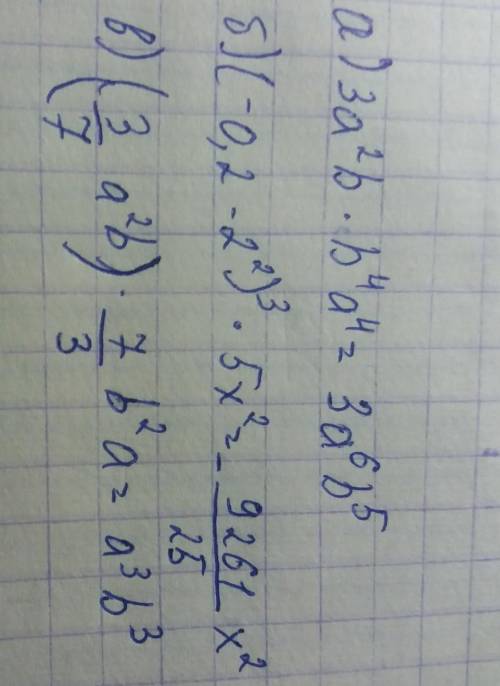 а) 3a²b · b⁴a⁴ = 3a⁶b⁵
б) (-0,2 - 2²)³ · 5x² = - 9261/25 x²
в) (3/7 a²b) · 7/3 b²a = a³b³